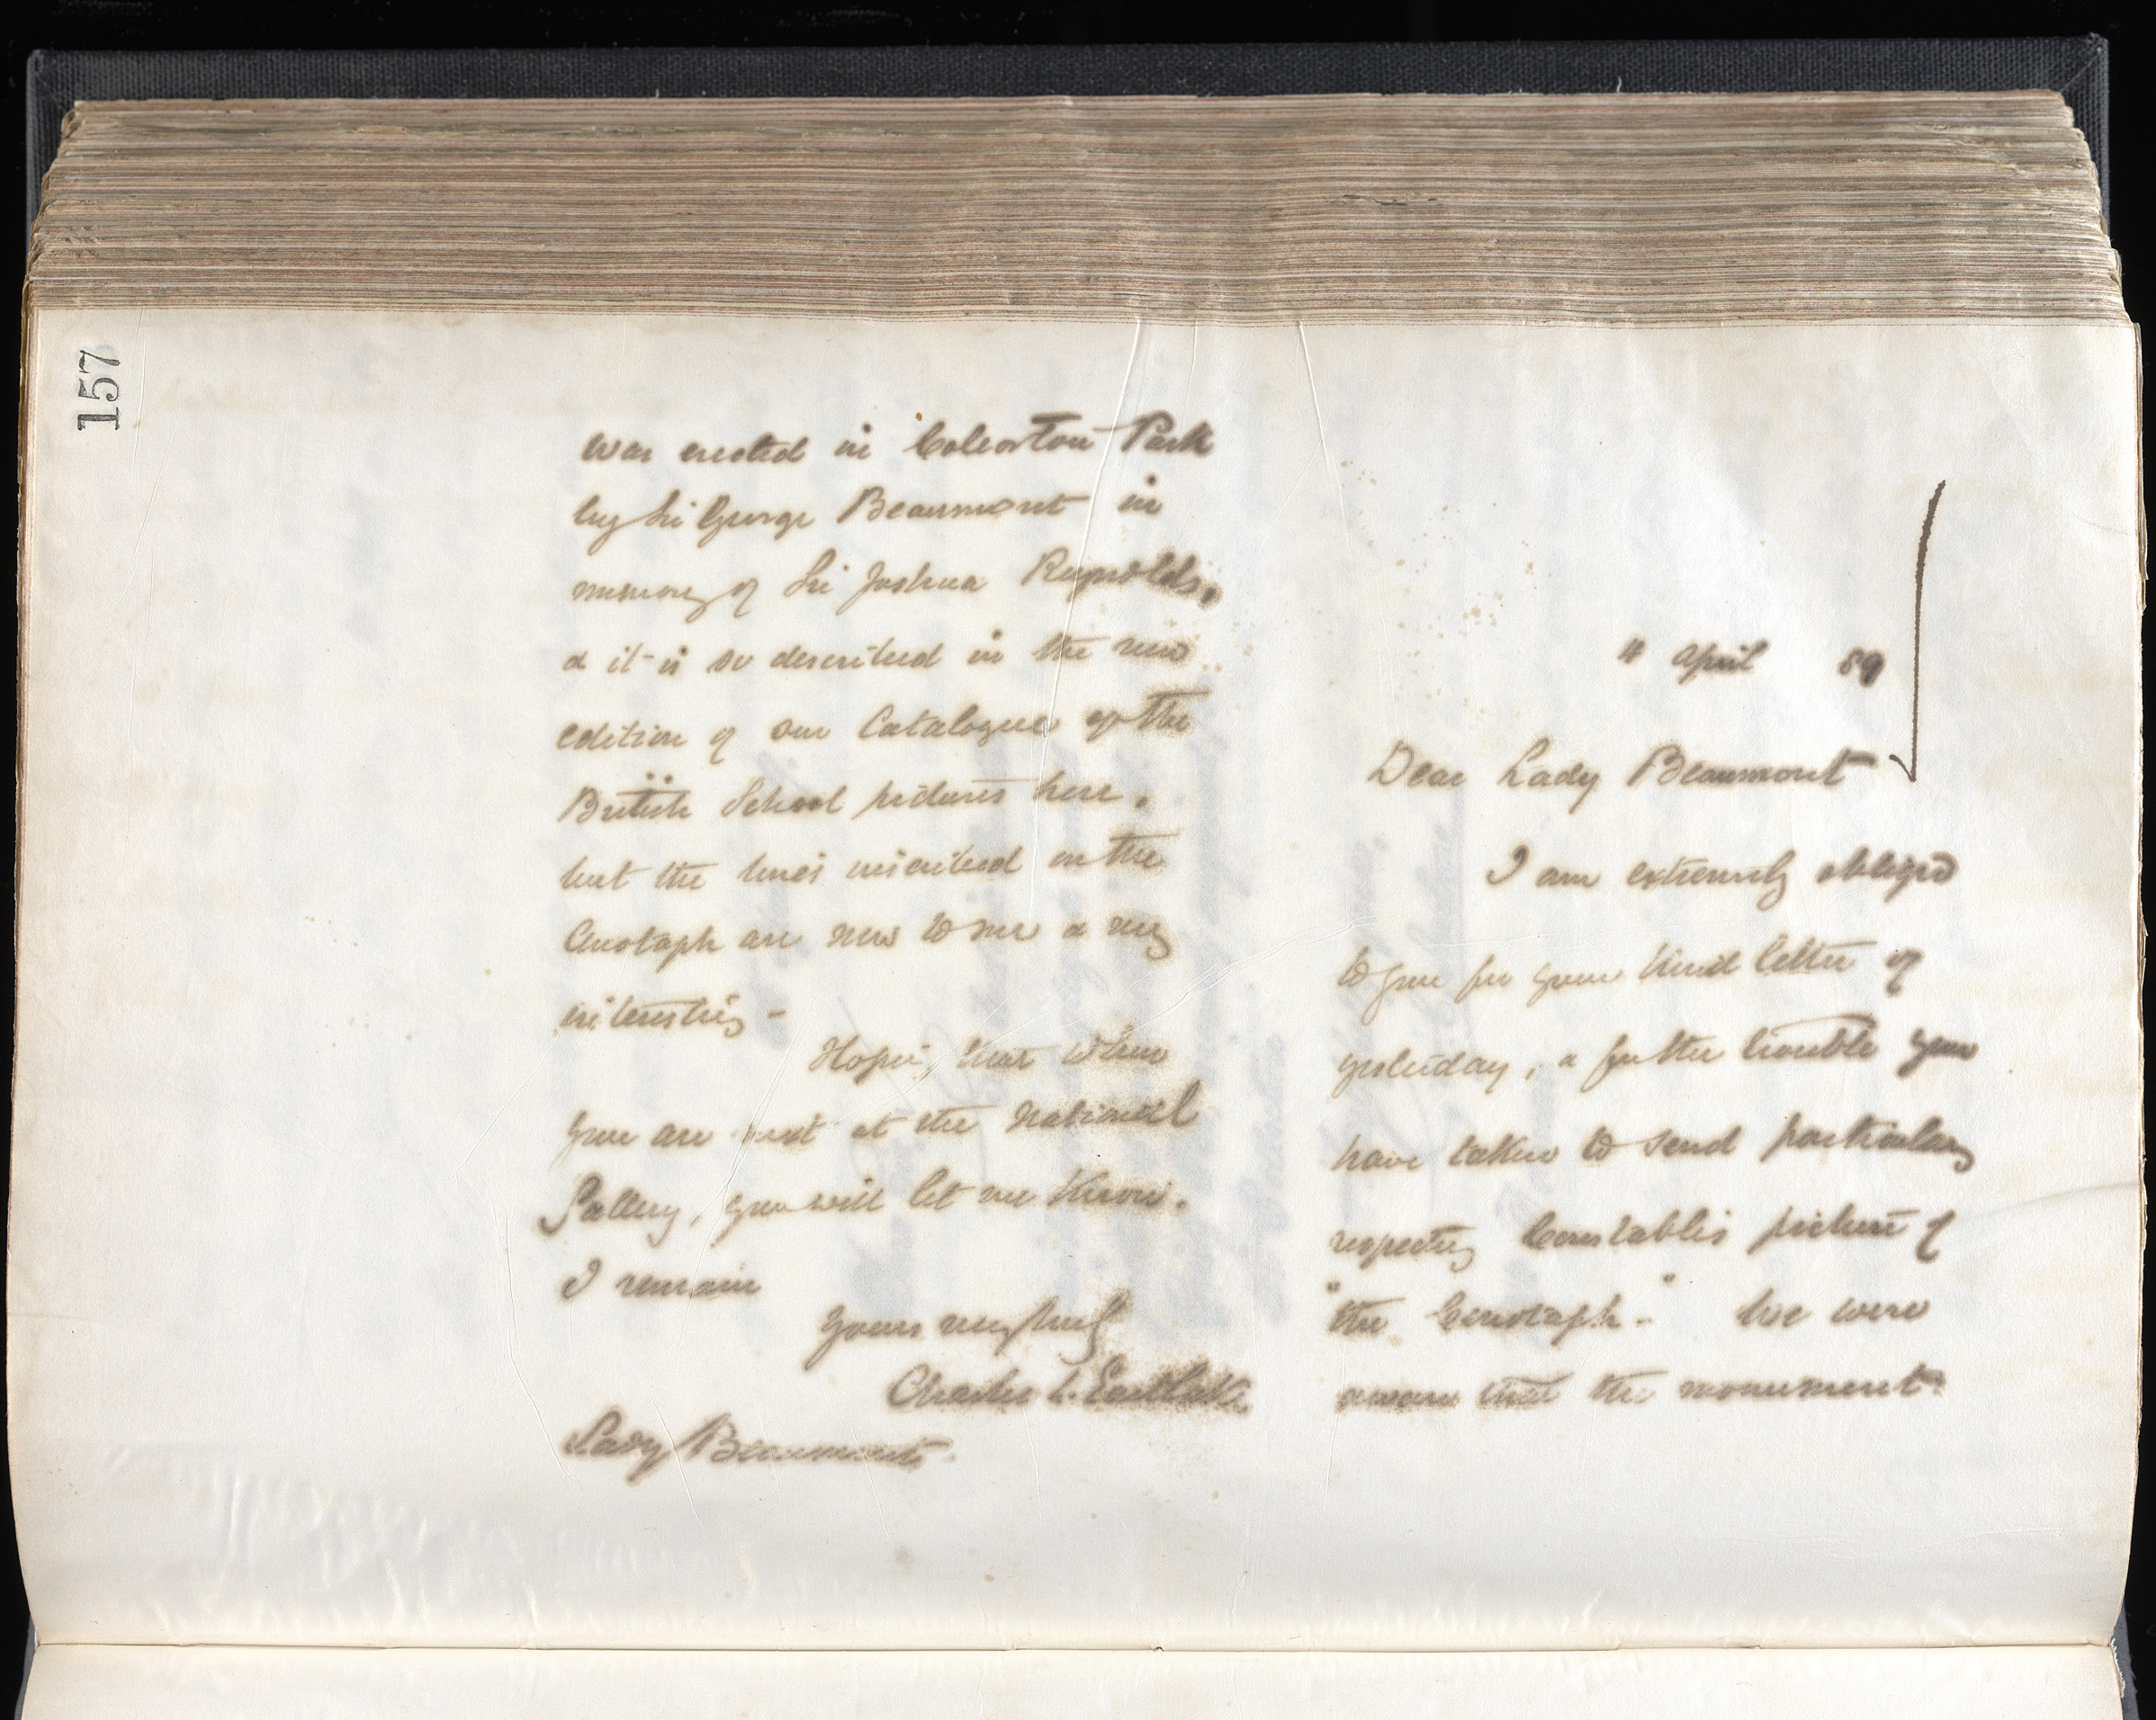 157
4 April 89
Dear Lady Beaumont
I am extremely obliged
to you for your kind letter of
yesterday, & for the trouble you
have taken to send particulars
respecting Constable's picture of
"the Cenotaph." We were
aware that the monument
was erected in Coleorton Park
by Sir George Beaumont in
memory of Sir Joshua Reynolds,
& it is so described in the new
edition of our Catalogue of the
British School pictures here,
but the lines inscribed on the
Cenotaph are new to me & very
interesting -
Hoping that when
you are next at the National
Gallery, you will let me know.
I remain
Yours very truly
Charles L. Eastlake
Lady Beaumont.